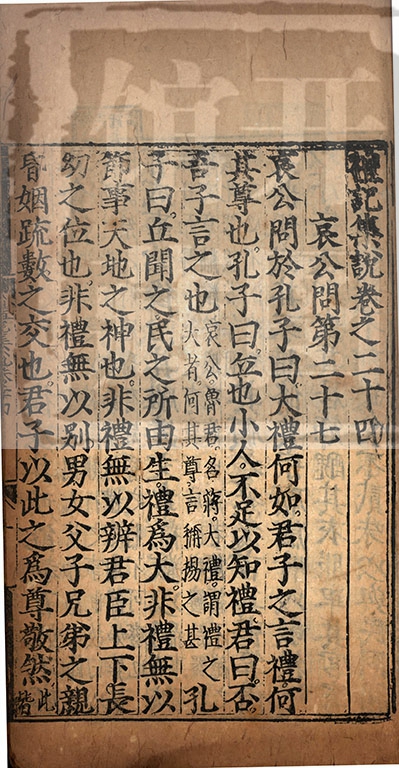 禮記集說卷之二十四
哀公問第二十七
哀公問於孔子曰大禮何如君子之言禮何
其尊也孔子曰丘也小人不足以知禮君曰否
吾子言之也哀公魯君名蔣大禮謂禮之大者何其尊言稱揚之甚孔
子曰丘聞之民之所由生禮為大非禮無以
節事天地之神也非禮無以辨君臣上下長
幼之位也非禮無以別男女父子兄弟之親
昏姻疏數之交也君子以此之為尊敬然此皆